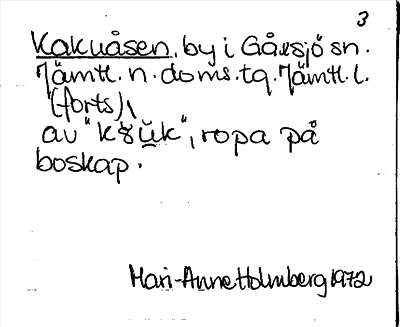 3
Kakuåsen, by i Gåxsjö sn.
Jämtl. n. doms. tg. Jämtl. l.
(forts),
av "k, ropa på
boskap.
Mari-Anne Holmberg 1972